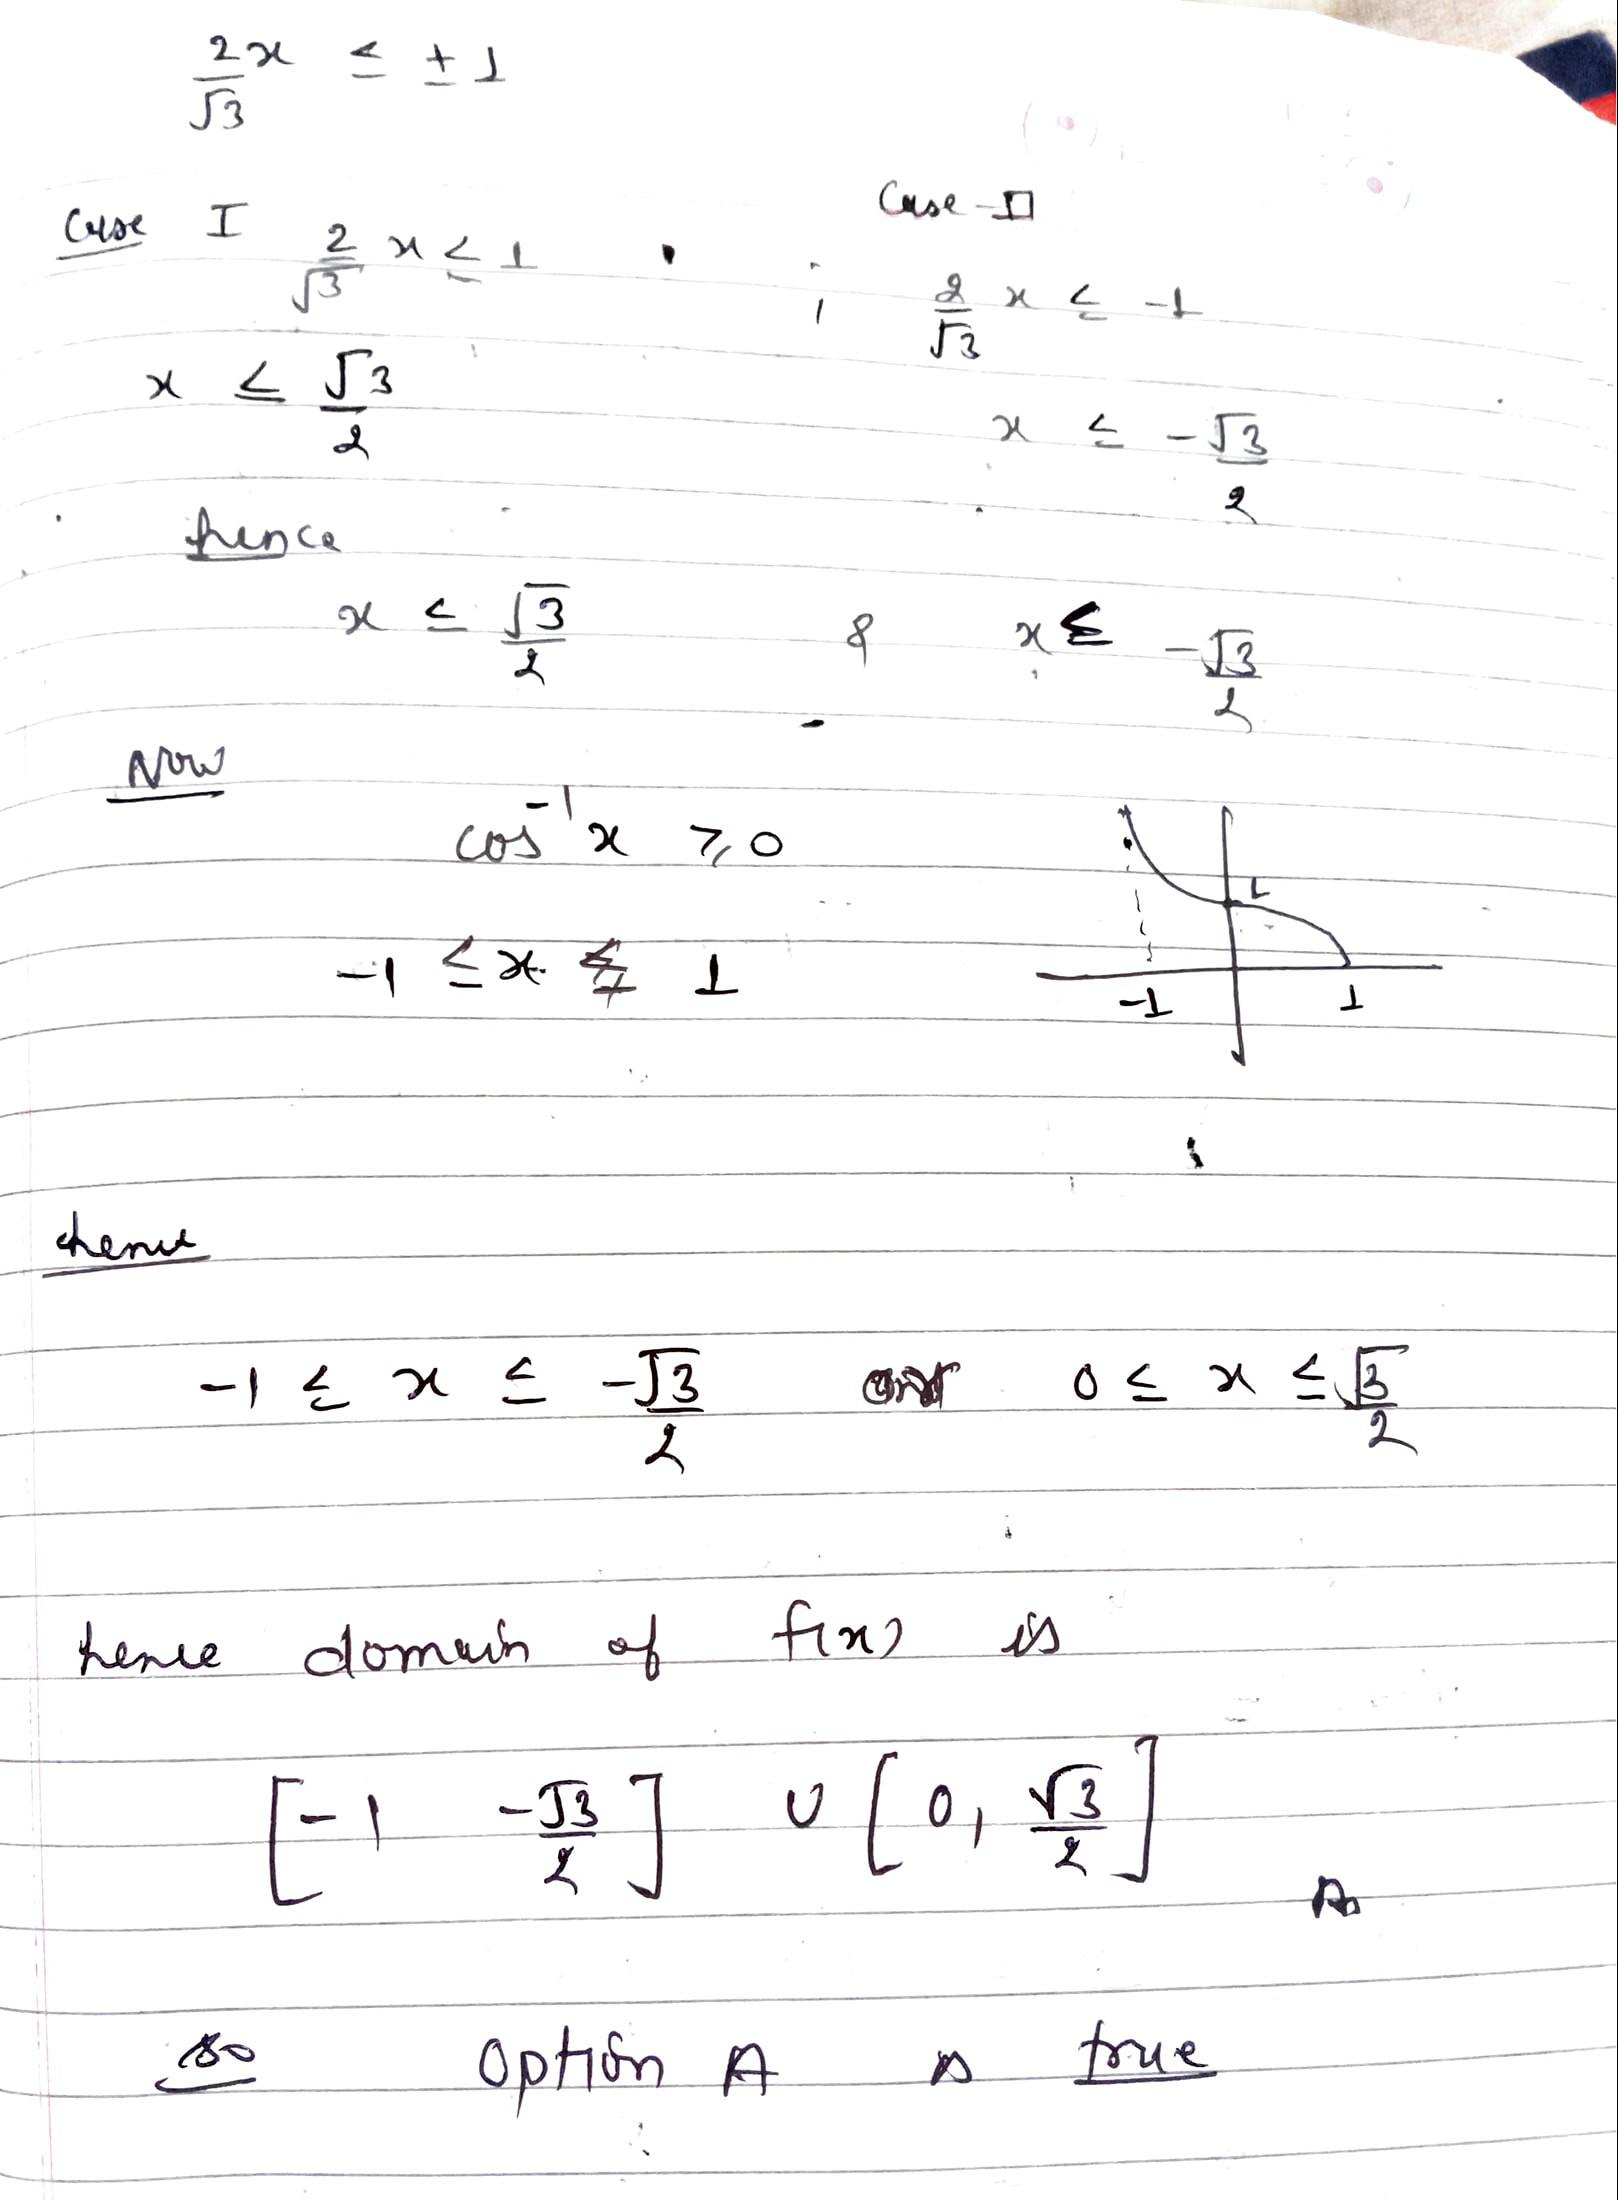 2/√3 x ≤ ±1
Case I 2/√3 x ≤ 1 ; Case-II 2/√3 x ≤ -1
x ≤ √3/2 x ≤ -√3/2
hence
x ≤ √3/2 & x ≤ -√3/2
Now
cos⁻¹x ≥ 0
-1 ≤ x ≤ 1
-1 1
hence
-1 ≤ x ≤ -√3/2 or 0 ≤ x ≤ √3/2
hence domain of f(x) is
[-1 -√3/2] ∪ [0, √3/2]
so option A is true